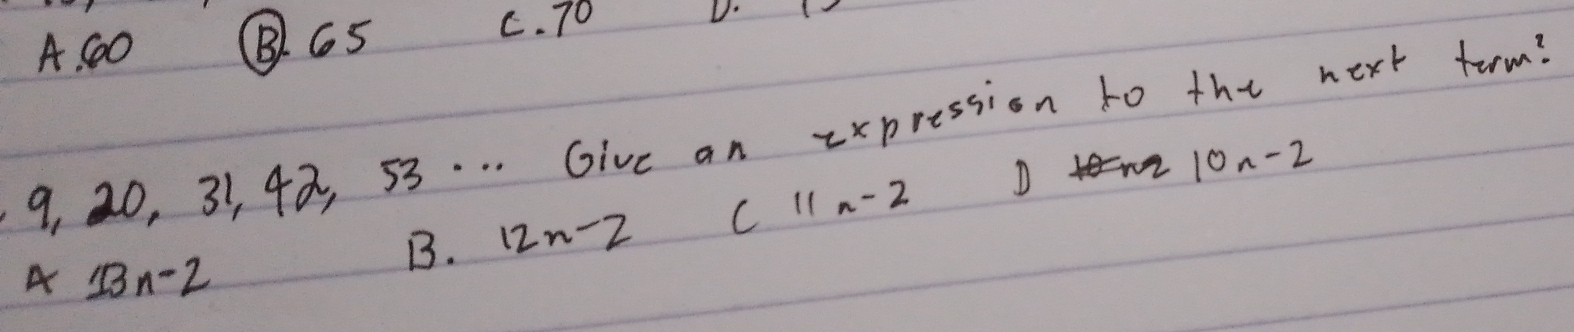 A. 60 B. 65 C. 70 D.
9, 20, 31, 42, 53 ... Give an expression to the next term?
A 13n-2 B. 12n-2 C 11n-2 D 10n-2